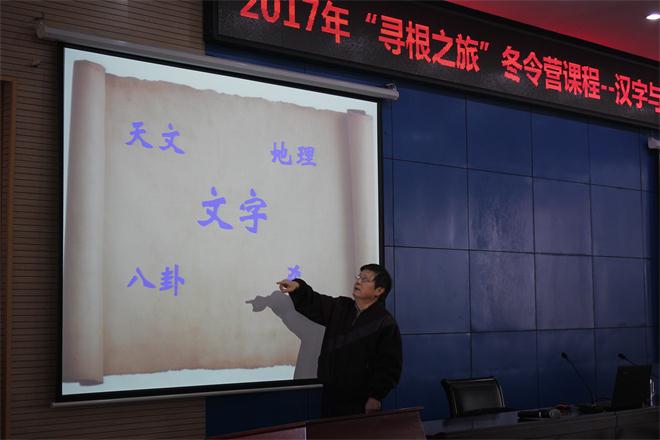 2017年“寻根之旅”冬令营课程--汉字与
天文 地理
文字
八卦